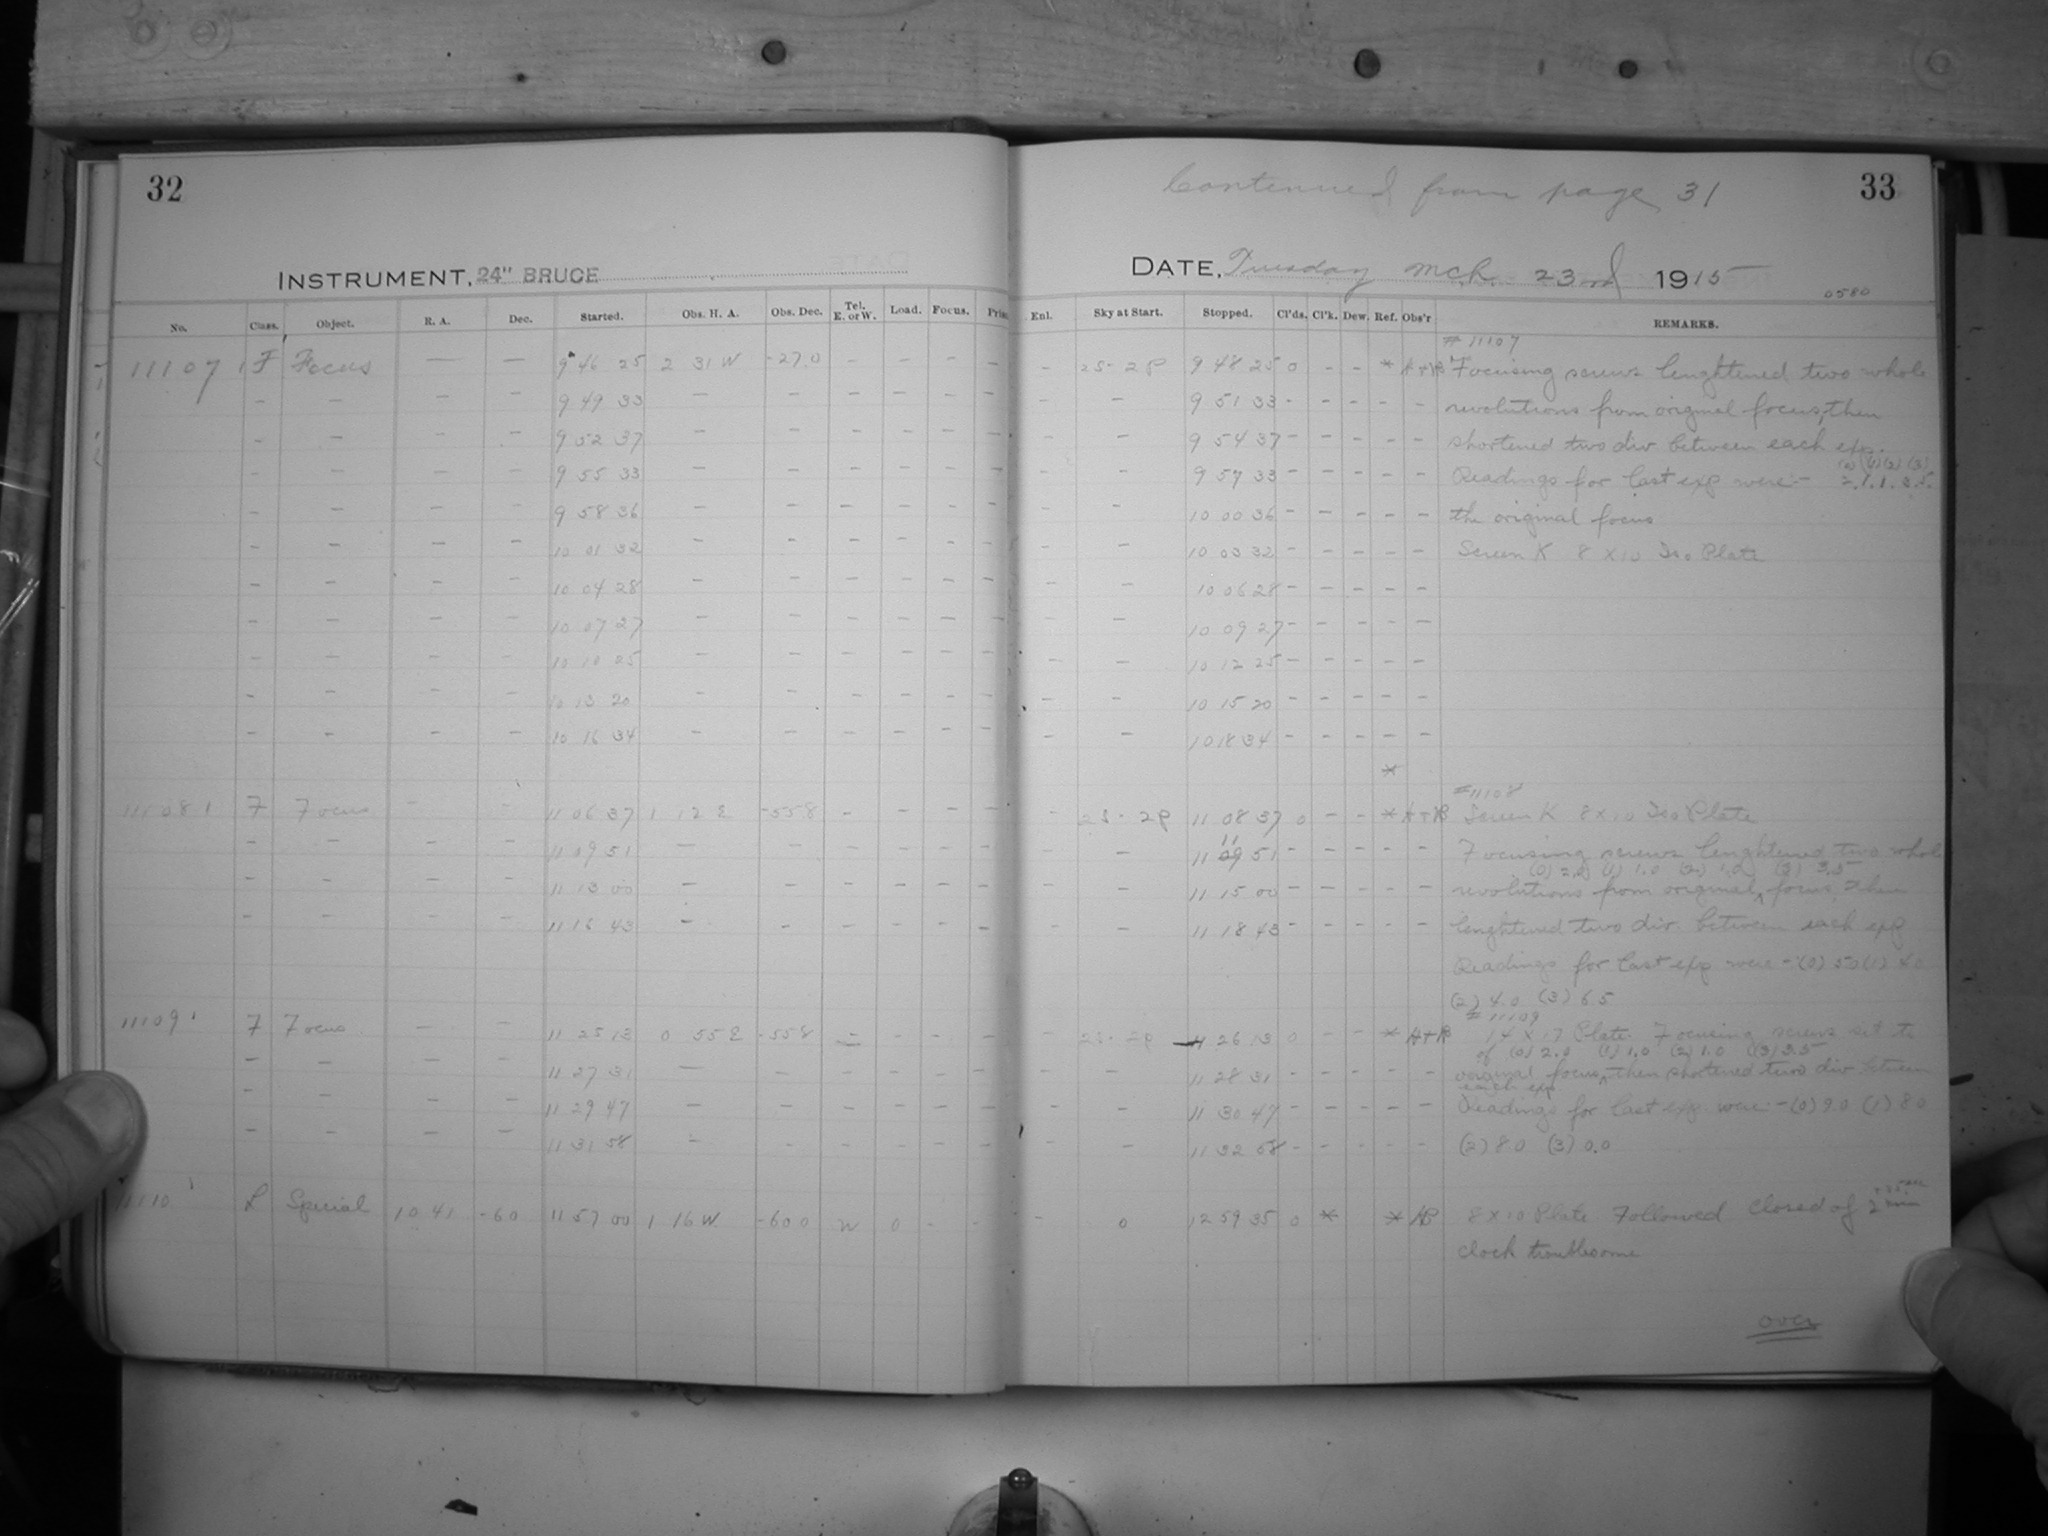 32
INSTRUMENT, 24" BRUCE
No. Class. Object. R. A. Dec. Started. Obs. H. A. Obs. Dec. Tel. E. or W. Load. Focus.
11107 F Focus — — 9 46 25 2 31 W -27.0 — — —
— — — — 9 49 33 — — — — —
— — — — 9 52 37 — — — — —
— — — — 9 55 33 — — — — —
— — — — 9 58 36 — — — — —
— — — — 10 01 32 — — — — —
— — — — 10 04 28 — — — — —
— — — — 10 07 27 — — — — —
— — — — 10 10 25 — — — — —
— — — — 10 13 20 — — — — —
— — — — 10 16 34 — — — — —
11108 F Focus — — 11 06 37 1 12 E -55.8 — — —
— — — — 11 09 51 — — — — —
— — — — 11 13 00 — — — — —
— — — — 11 16 43 — — — — —
11109 F Focus — — 11 25 13 0 55 E -55.8 — — —
— — — — 11 27 31 — — — — —
— — — — 11 29 47 — — — — —
— — — — 11 31 58 — — — — —
11110 L Special 10 41 -60 11 57 00 1 16 W -60.0 W 0 — —
Continued from page 31
33
DATE, Tuesday Mch. 23rd 1915
0580
Enl. Sky at Start. Stopped. Cl'ds. Cl'k. Dew. Ref. Obs'r REMARKS.
# 11107
— 2S-2P 9 48 25 0 — — * Focusing screws lenghtened two whole
— — 9 51 33 — — — — — revolutions from original focus, then
— — 9 54 37 — — — — — shortened two div between each exp.
(0) (1) (2) (3)
— — 9 57 33 — — — — — Readings for last exp were:- 2.1.1.3.5.
— — 10 00 36 — — — — — the original focus
— — 10 03 32 — — — — — Screen K 8 x 10 Iso Plate
— — 10 06 28 — — — — —
— — 10 09 27 — — — — —
— — 10 12 25 — — — — —
— — 10 15 20 — — — — —
— — 10 18 34 — — — — —
*
#11108
— 2S-2P 11 08 37 0 — — * Screen K 8 x 10 Iso Plate
— — 11 11 51 — — — — — Focusing screws lenghtened two whole
(0) 2.0 (1) 1.0 (2) 1.0 (3) 3.5
— — 11 15 00 — — — — — revolutions from original focus, then
— — 11 18 43 — — — — — lenghtened two div. between each exp
Readings for last exp were - (0) 5.0 (1) 4.0
(2) 4.0 (3) 6.5
# 11109
— 2S-2P 11 26 13 0 — — * 14 x 17 Plate. Focusing screws set to
of (0) 2.0 (1) 1.0 (2) 1.0 (3) 3.5
— — 11 28 31 — — — — — original focus, then shortened two div between
each exp
— — 11 30 47 — — — — — Readings for last exp were:- (0) 9.0 (1) 8.0
— — 11 32 58 — — — — — (2) 8.0 (3) 0.0
— 0 12 59 35 0 * * 8 x 10 Plate Followed Closed of 2 min
clock troublesome
over